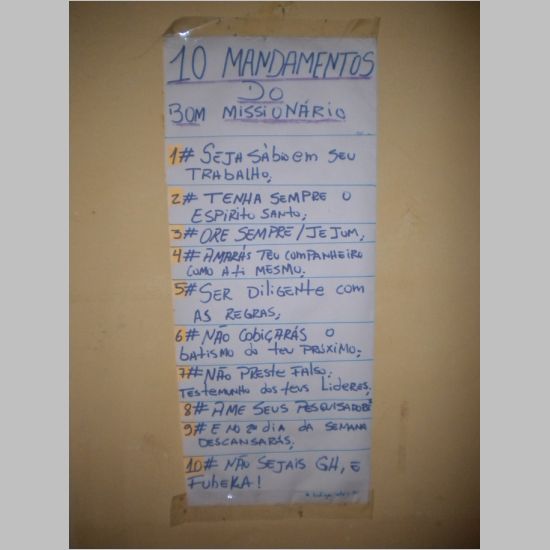 10 MANDAMENTOS
DO
BOM MISSIONÁRIO
1# SEJA SÁBIO EM SEU
TRABALHO;
2# TENHA SEMPRE O
ESPÍRITO SANTO;
3# ORE SEMPRE/JEJUM;
4# AMARÁS TEU COMPANHEIRO
COMO A TI MESMO;
5# SER DILIGENTE COM
AS REGRAS;
6# NÃO COBIÇARÁS O
batismo do teu PRÓXIMO;
7# NÃO PRESTE FALSO
TESTEMUNHO dos teus Líderes;
8# AME SEUS PESQUISADORES
9# E NO 2º DIA DA SEMANA
DESCANSARÁS;
10# NÃO SEJAIS GH, E
FUBEKA!